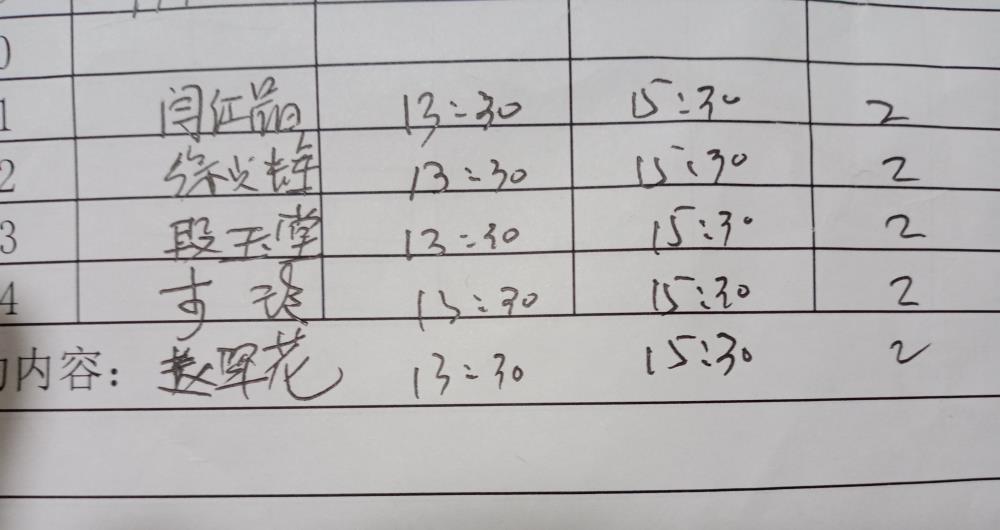 0
1 闫征品 13:30 15:30 2
2 徐焕锋 13:30 15:30 2
3 段玉堂 13:30 15:30 2
4 13:30 15:30 2
内容: 赵翠花 13:30 15:30 2